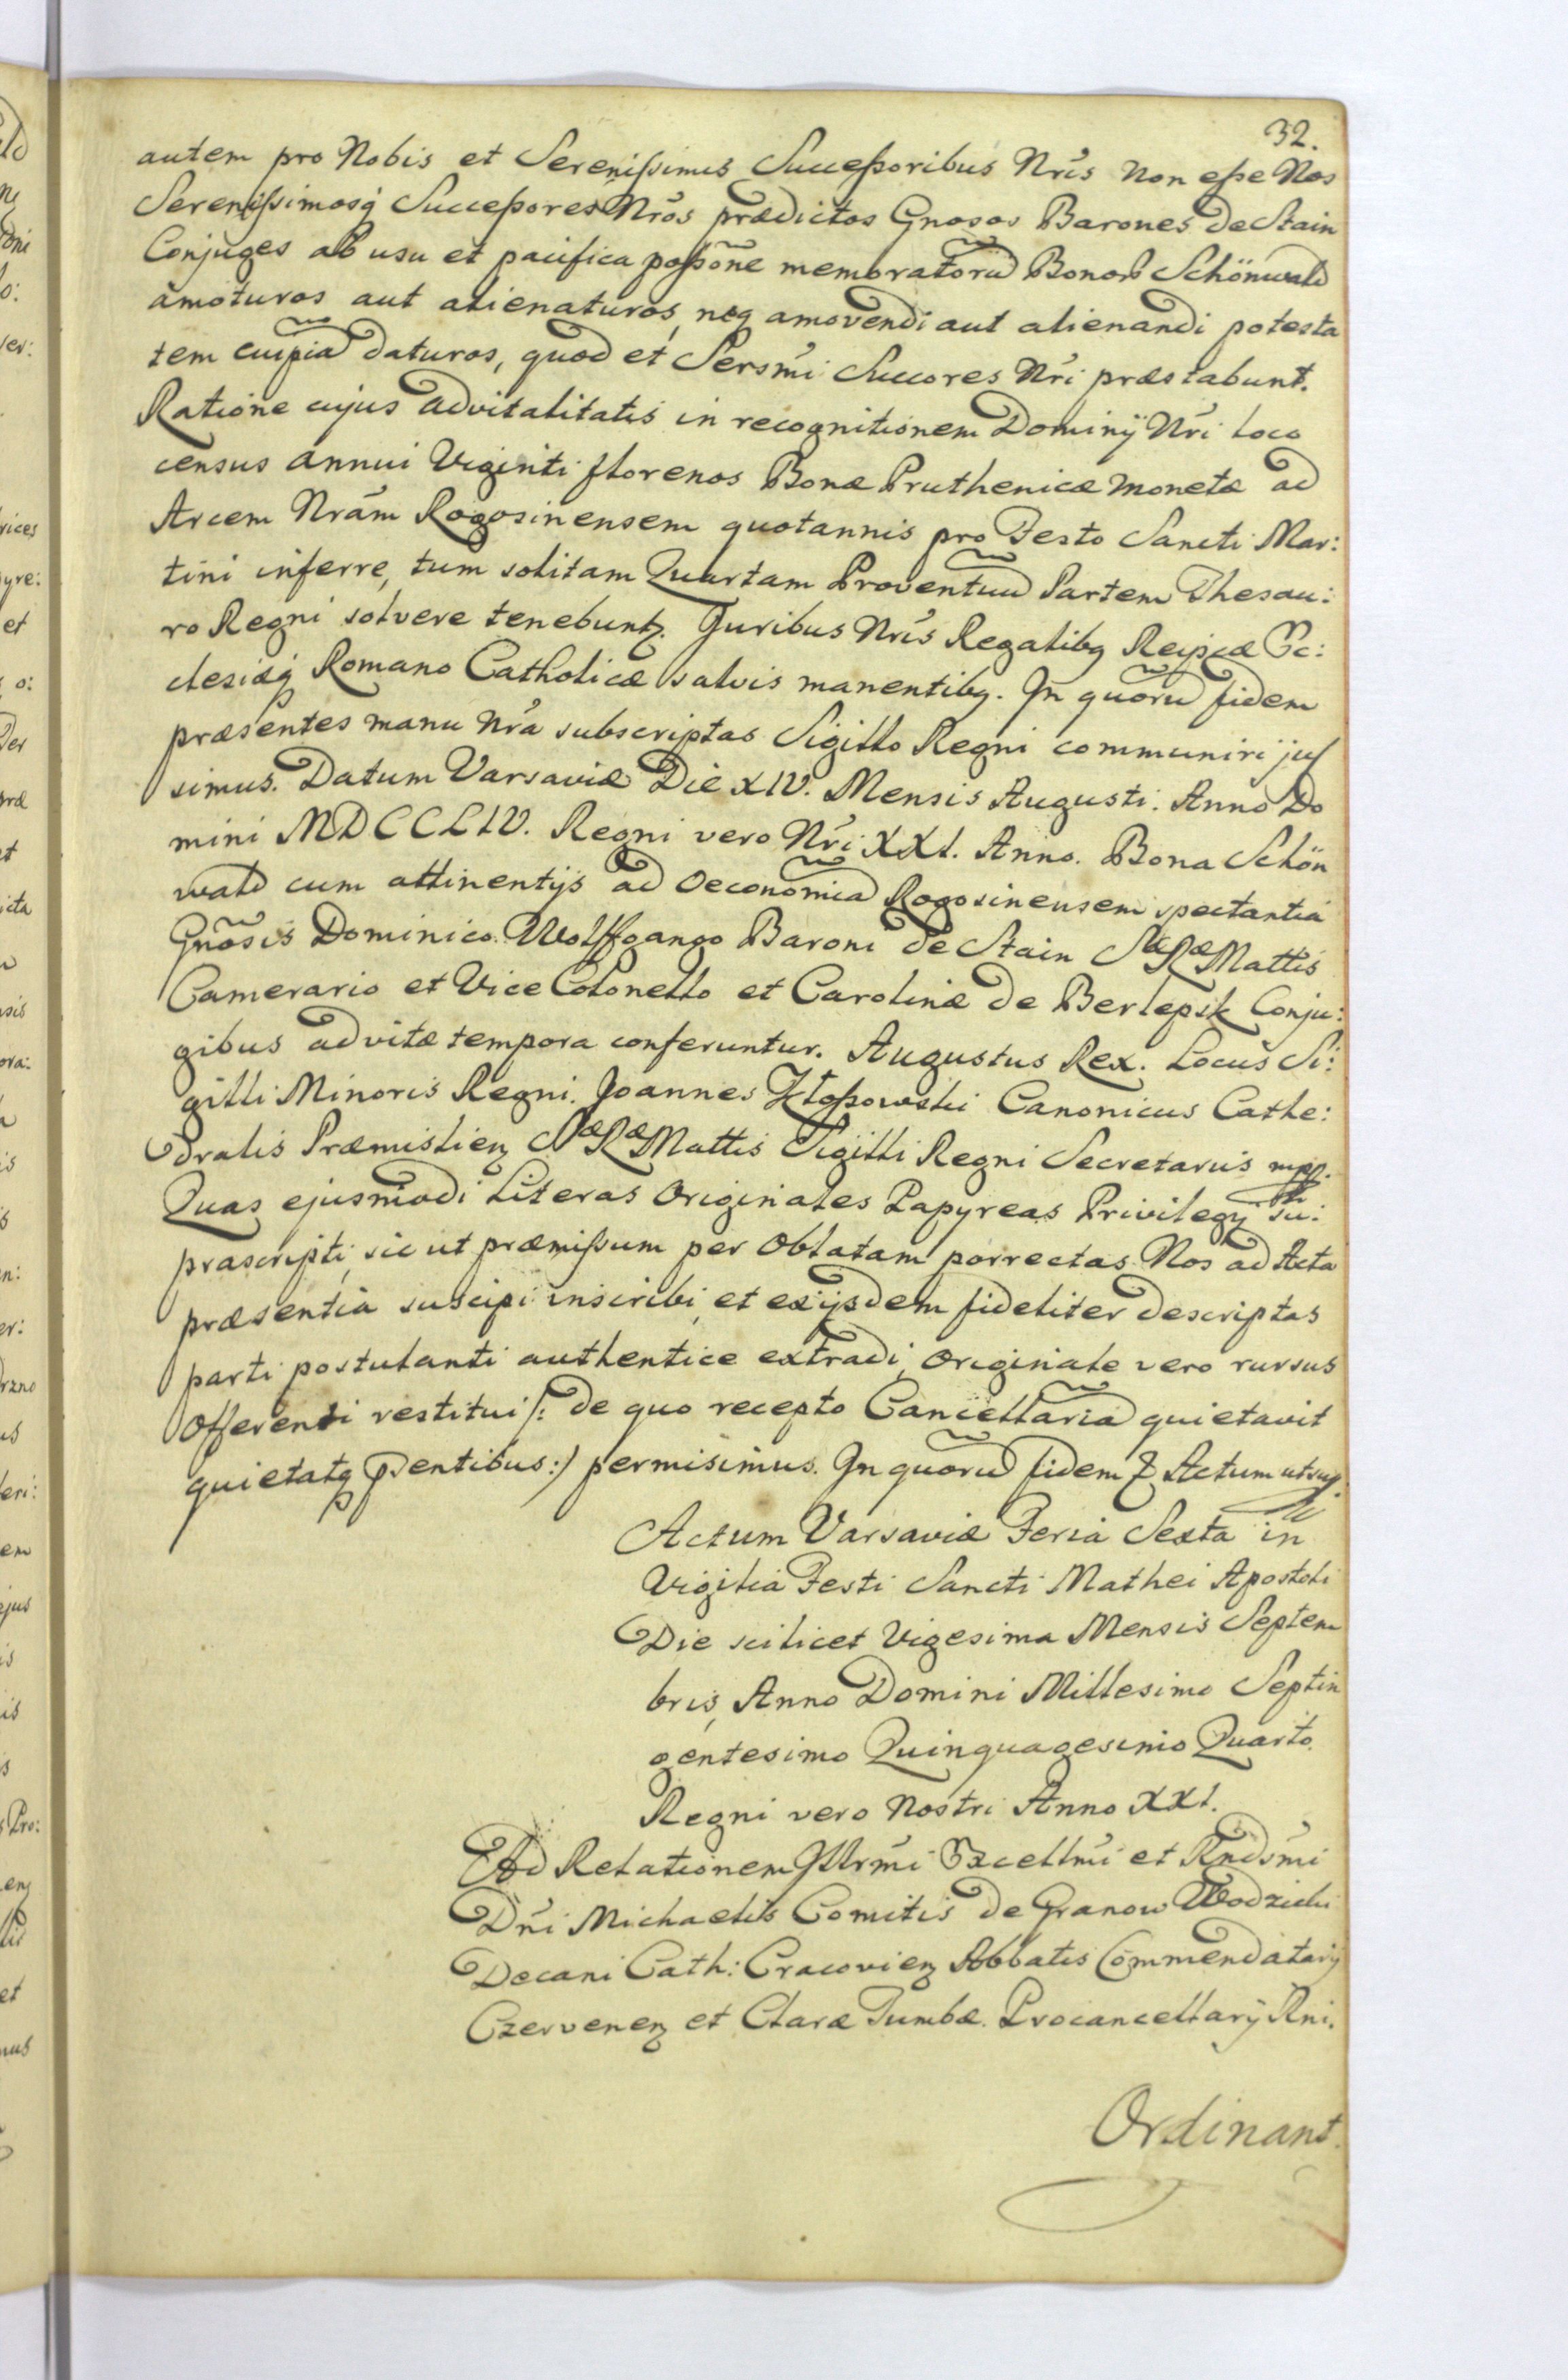 32.
autem pro Nobis et Serenissimis Successoribus Nris non esse Nos
Serenissimosq Successores Nros prædictos Gnosos Barones de Stain
Conjuges ab usu et pacifica possone memoratoru Bonor Schönwald
amoturos aut alienaturos, neq amovendi aut alienandi potesta
tem cuipia daturos, quod et Sersmi Succores Nri præstabunt.
Ratione cujus advitalitatis in recognitionem Dominij Nri loco
census annui Viginti florenos Bonæ Pruthenicæ monetæ ad
Arcem Nram Rogosinensem quotannis pro Festo Sancti Mar:
tini inferre, tum solitam Quartam Proventuu Partem Thesau:
ro Regni solvere tenebunt. Juribus Nris Regalibq Reipcæ Ec:
clesiæq Romano Catholicæ salvis manentibq. In quoru fidem
præsentes manu Nra subscriptas Sigillo Regni communiri jus
simus. Datum Varsaviæ Die XIV. Mensis Augusti. Anno Do
mini MDCCLIV. Regni vero Nri XXI. Anno. Bona Schön
wald cum attinentijs ad Oeconomia Rogosinensem spectantia
Gnosis Dominico Wolffgango Baroni de Stain Sæ Ræ Mattis
Camerario et Vice Colonello et Carolinæ de Berlepsk Conju:
gibus ad vitæ tempora conferuntur. Augustus Rex. Locus Si:
gilli Minoris Regni. Joannes Kłossowski Canonicus Cathe:
dralis Præmislien Sæ Ræ Mattis Sigilli Regni Secretarius mpp.
Quas ejusmodi Literas Originales Papyreas Privilegij su:
prascripti, sicut præmissum per Oblatam porrectas Nos ad Acta
præsentia suscipi inscribi, et ex ijsdem fideliter descriptas
parti postulanti authentice extradi, Originale vero rursus
Offerenti restitui /: de quo recepto Cancellaria quietavit
quietatq pntibus :/ permisimus. In quoru fidem & Actum ut sup.
Actum Varsaviæ Feria Sexta in
Vigilia Festi Sancti Mathei Apostoli
Die scilicet Vigesima Mensis Septem
bris, Anno Domini Millesimo Septin
gentesimo Quinquagesimo Quarto.
Regni vero Nostri Anno XXI.
Ad Relationem Illrmi Excellmi et Rndsmi
Dni Michaelis Comitis de Granow Wodzicki
Decani Cath: Cracovien Abbatis Commendatarij
Czervenen et Claræ Tumbæ. Procancellarij Rni.
Ordinant.